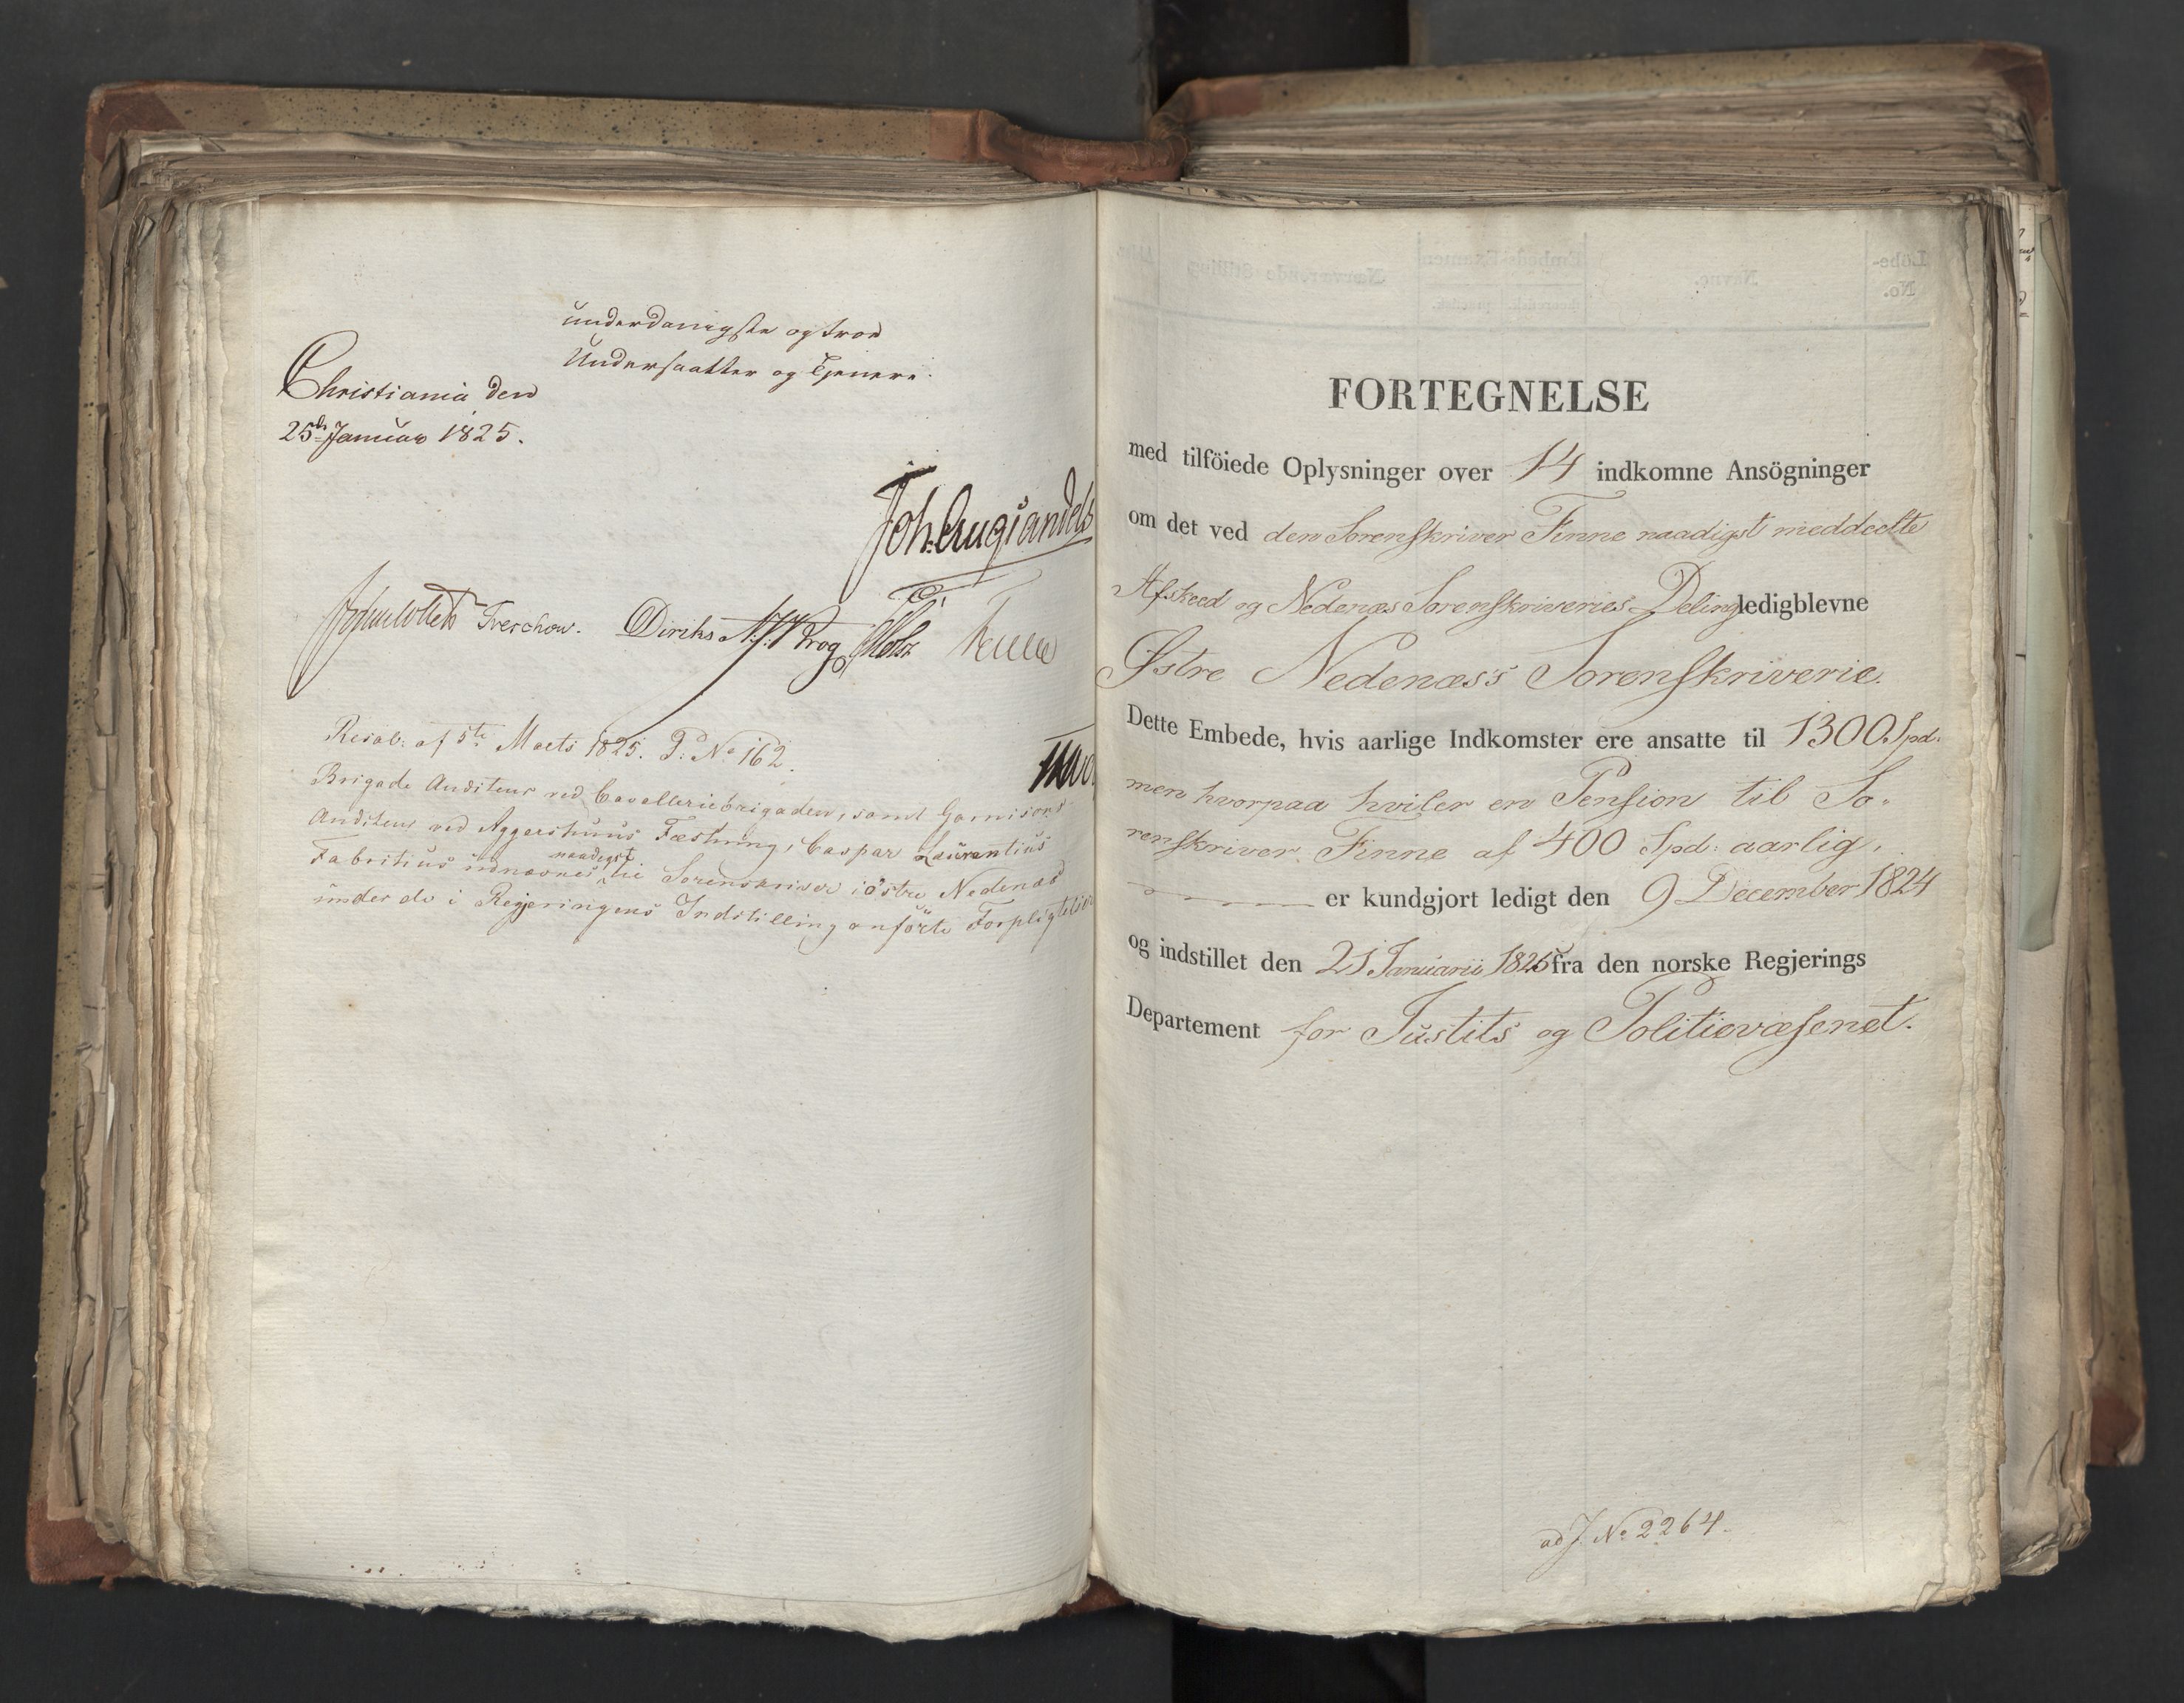 underdanigste og troe
Undersaatter og Tjenere.
Christiania den
25de Januar 1825.
Joh. Aug. Sandels
Jonas Collett Treschow. Diriks Krog Motzfeldt
Resol: af 5te Marts 1825. P: No 162.
Brigade Auditeur ved Cavalleriebrigaden, samt Garnisons
Auditeur ved Aggershuus Fæstning, Caspar Laurentius
Fabritius udnævnes naadigst til Sorenskriver i östre Nedenæs
under de i Regjeringens Indstilling anførte Forpligtelser
FORTEGNELSE
med tilföiede Oplysninger over 14 indkomne Ansögninger
om det ved den Sorenskriver Finne naadigst meddeelte
Afskeed og Nedenæs Sorenskriveries Deling ledigblevne
Østre Nedenæs's Sorenskriverie.
Dette Embede, hvis aarlige Indkomster ere ansatte til 1300 Spd.
men hvorpaa hviler en Pension til So-
renskriver Finne af 400 Spd: aarlig,
er kundgjort ledigt den 9 December 1824
og indstillet den 21 Januarii 1825 fra den norske Regjerings
Departement for Justits og Politievæsenet.
ad J. No 2264.